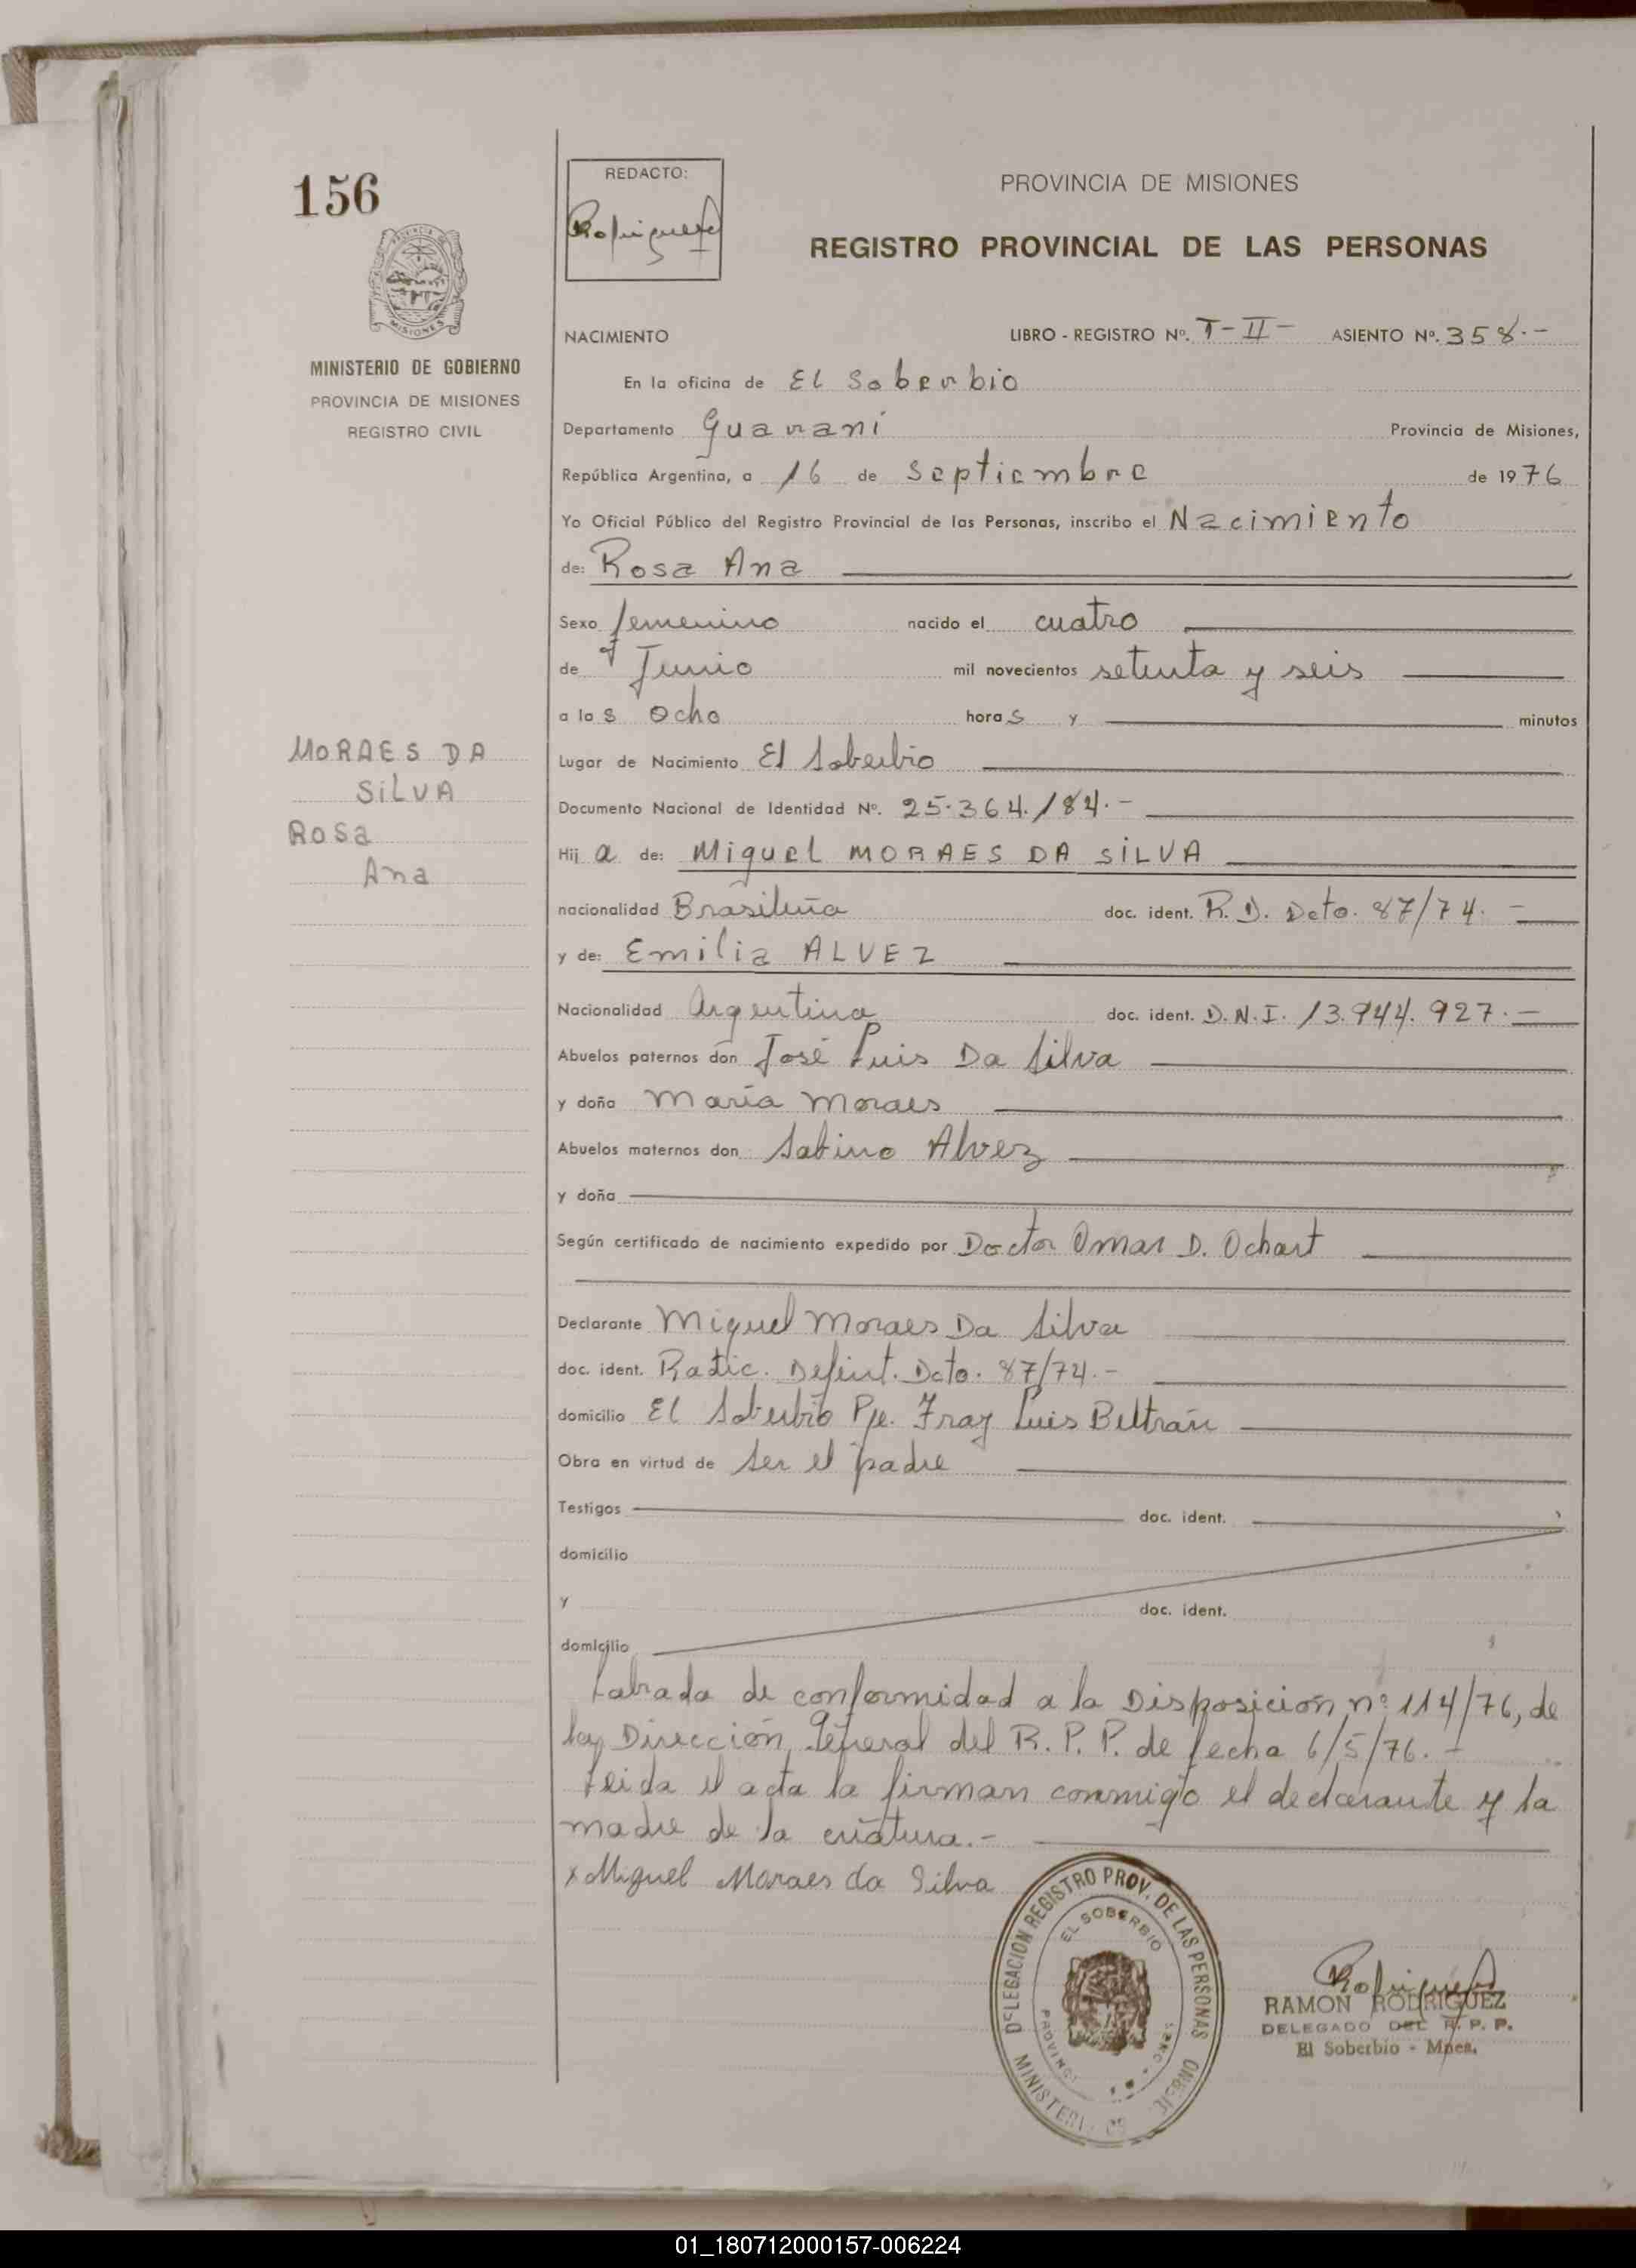 156
REDACTO:
Rodriguez
PROVINCIA DE MISIONES
REGISTRO PROVINCIAL DE LAS PERSONAS
MISIONES
MINISTERIO DE GOBIERNO
PROVINCIA DE MISIONES
REGISTRO CIVIL
NACIMIENTO LIBRO - REGISTRO Nº. T-II- ASIENTO Nº. 358.-
En la oficina de El Soberbio
Departamento Guarani Provincia de Misiones,
República Argentina, a 16 de Septiembre de 1976
Yo Oficial Público del Registro Provincial de las Personas, inscribo el Nacimiento
de: Rosa Ana
Sexo femenino nacido el cuatro
de Junio mil novecientos setenta y seis
a las Ocho horas y minutos
Lugar de Nacimiento El Soberbio
Documento Nacional de Identidad Nº. 25.364.184.-
Hija de: Miguel MORAES DA SILVA
nacionalidad Brasileña doc. ident. R.D. Dcto. 87/74. -
y de: Emilia ALVEZ
Nacionalidad Argentina doc. ident. D.N.I. 13.944.927.-
Abuelos paternos don José Luis Da Silva
y doña María Moraes
Abuelos maternos don Sabino Alvez
y doña
Según certificado de nacimiento expedido por Doctor Omar D. Ochart
Declarante Miguel Moraes Da Silva
doc. ident. Radic. Defint. Dcto. 87/74.-
domicilio El Soberbio Pje. Fray Luis Beltrán
Obra en virtud de ser el padre
Testigos doc. ident.
domicilio
y doc. ident.
domicilio
Labrada de conformidad a la Disposición nº 114/76, de
la Dirección General del R.P.P. de fecha 6/5/76.-
Leida el acta la firman conmigo el declarante y la
madre de la criatura.-
x Miguel Moraes da Silva
MORAES DA
SILVA
Rosa
Ana
DELEGACION REGISTRO PROV. DE LAS PERSONAS
EL SOBERBIO
Rodriguez
RAMON RODRIGUEZ
DELEGADO DEL R. P. P.
El Soberbio - Mnes.
01_180712000157-006224